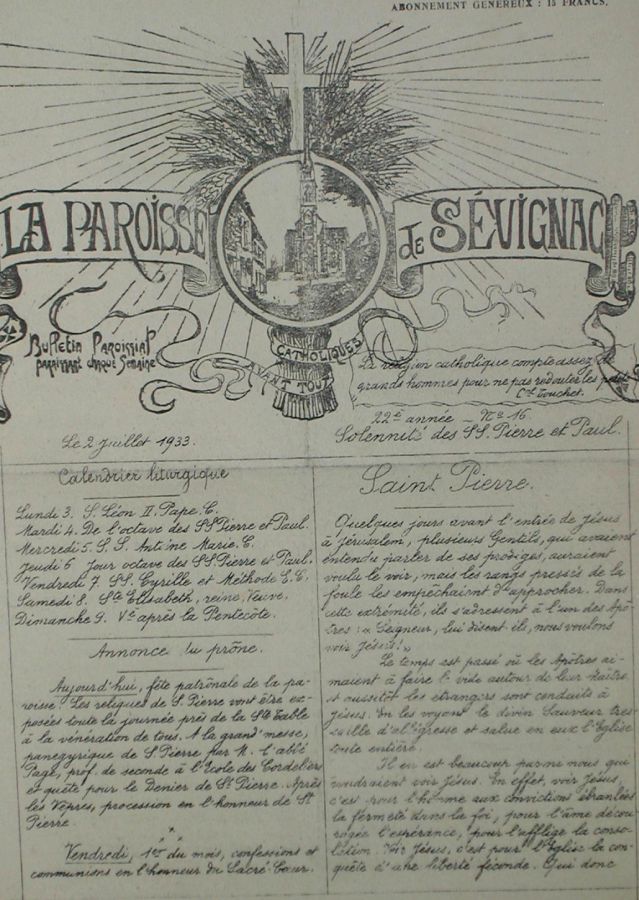 ABONNEMENT GÉNÉREUX : 15 FRANCS.
LA PAROISSE de SÉVIGNAC
Bulletin Paroissial
paraissant chaque Semaine
CATHOLIQUES
AVANT TOUT
La religion catholique compte assez de
grands hommes pour ne pas redouter les petits
Touchet.
22e année _ No 16.
Le 2 Juillet 1933.
Solennité des SS. Pierre et Paul.
Calendrier liturgique
Lundi 3. S. Léon II. Pape. C.
Mardi 4. De l'octave des SS Pierre et Paul.
Mercredi 5. S. S. Antine Marie. C.
Jeudi 6 Jour octave des SS. Pierre et Paul.
Vendredi 7 SS. Cyrille et Méthode E. C.
Samedi 8. Ste Elisabeth, reine, Veuve.
Dimanche 9. Ve après la Pentecôte.
Annonce du prône.
Aujourd'hui, fête patronale de la pa-
roisse. Les reliques de S. Pierre vont être ex-
posées toute la journée près de la Ste Table
à la vénération de tous. A la grand'messe,
panégyrique de S. Pierre par M. l'abbé
Page, prof. de seconde à l'Ecole des Cordeliers
et quête pour le Denier de St Pierre. Après
les Vêpres, procession en l'honneur de St
Pierre
Vendredi, 1er du mois, confessions et
communions en l'honneur du Sacré-Coeur.
Saint Pierre.
Quelques jours avant l'entrée de Jésus
à Jérusalem, plusieurs Gentils, qui avaient
entendu parler de ses prodiges, auraient
voulu le voir, mais les rangs pressés de la
foule les empêchaient d'approcher. Dans
cette extrémité, ils s'adressent à l'un des Apô-
tres : « Seigneur, lui disent-ils, nous voulons
voir Jésus ! »
Le temps est passé où les Apôtres ai-
maient à faire le vide autour de leur Maître,
et aussitôt les étrangers sont conduits à
Jésus. En les voyant le divin Sauveur tres-
saille d'allégresse et salue en eux l'Eglise
toute entière.
Il en est beaucoup parmi nous qui
voudraient voir Jésus. En effet, voir Jésus,
c'est pour l'homme aux convictions ébranlées
la fermeté dans la foi, pour l'âme décou-
ragée l'espérance, pour l'affligé la conso-
lation. Voir Jésus, c'est pour l'Eglise la con-
quête d'une liberté féconde. Qui donc